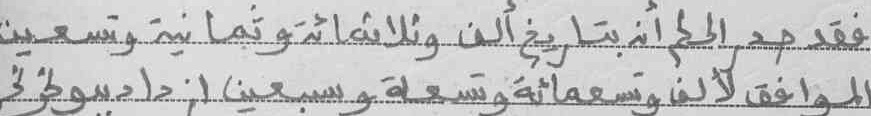 فقد صدر الحكم أنه بتاريخ ألف وثلاثمائة وثمانية وتسعين
الموافق لألف وتسعمائة وتسعة وسبعين ازداد